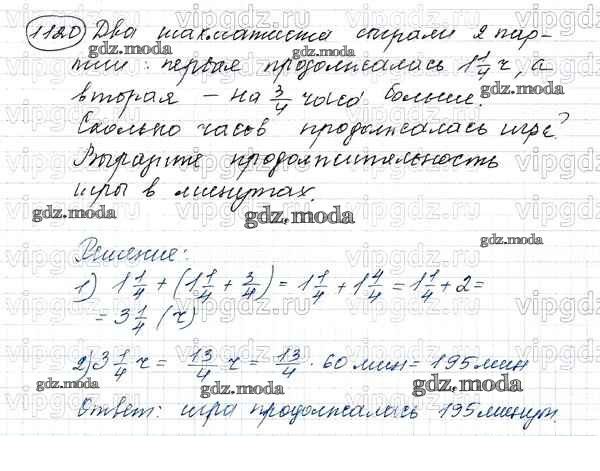 1120 Два шахматиста сыграли 2 пар-
тии: первая продолжалась 1 1/4 ч, а
вторая – на 3/4 часа больше.
Сколько часов продолжалась игра?
Выразите продолжительность
игры в минутах.
gdz.moda
Решение:
1) 1 1/4 + (1 1/4 + 3/4) = 1 1/4 + 1 4/4 = 1 1/4 + 2 =
= 3 1/4 (ч)
2) 3 1/4 ч = 13/4 ч = 13/4 · 60 мин = 195 мин
gdz.moda
Ответ: игра продолжалась 195 минут.
vipgdz.ru